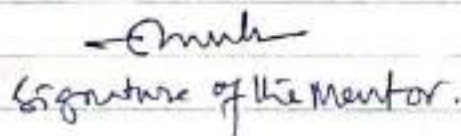 Signature of the Mentor.